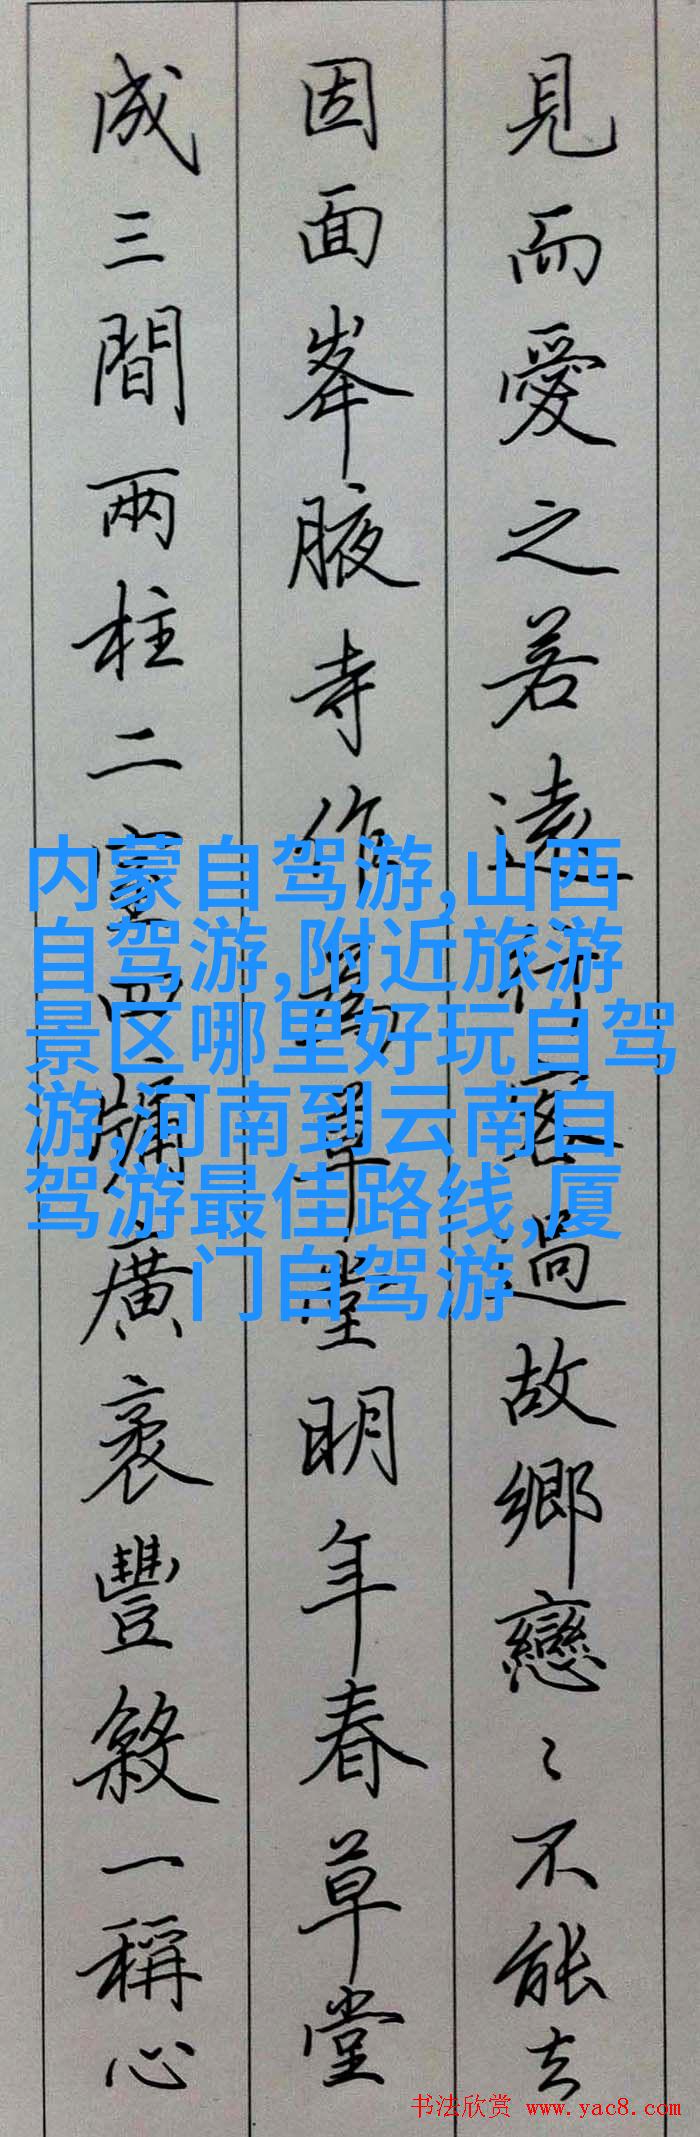 見而愛之若遠行客過故鄉戀〻不能去
因面峯腋寺作為草堂明年春草堂
成三間兩柱二室四牖廣袤豐殺一稱心
内蒙自驾游,山西
自驾游,附近旅游
景区哪里好玩自驾
游,河南到云南自
驾游最佳路线,厦
门自驾游
书法欣赏 www.yac8.com